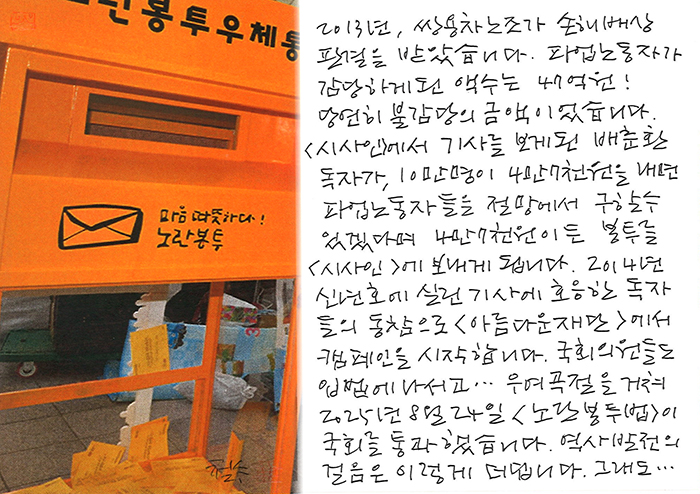 노란봉투우체통
마음 따뜻하다!
노란봉투
2013년, 쌍용차노조가 손해배상
판결을 받았습니다. 파업노동자가
감당하게된 액수는 47억원!
당연히 불감당의 금액이었습니다.
<시사인>에서 기사를 보게된 배춘환
독자가, 10만명이 4만7천원을 내면
파업노동자들을 절망에서 구할수
있겠다며 4만7천원이 든 봉투를
<시사인>에 보내게 됩니다. 2014년
신년호에 실린 기사에 호응한 독자
들의 동참으로 <아름다운재단>에서
캠페인을 시작합니다. 국회의원들도
입법에 나서고… 우여곡절을 거쳐
2025년 8월 24일 <노란봉투법>이
국회를 통과했습니다. 역사발전의
걸음은 이렇게 더딥니다. 그래도…